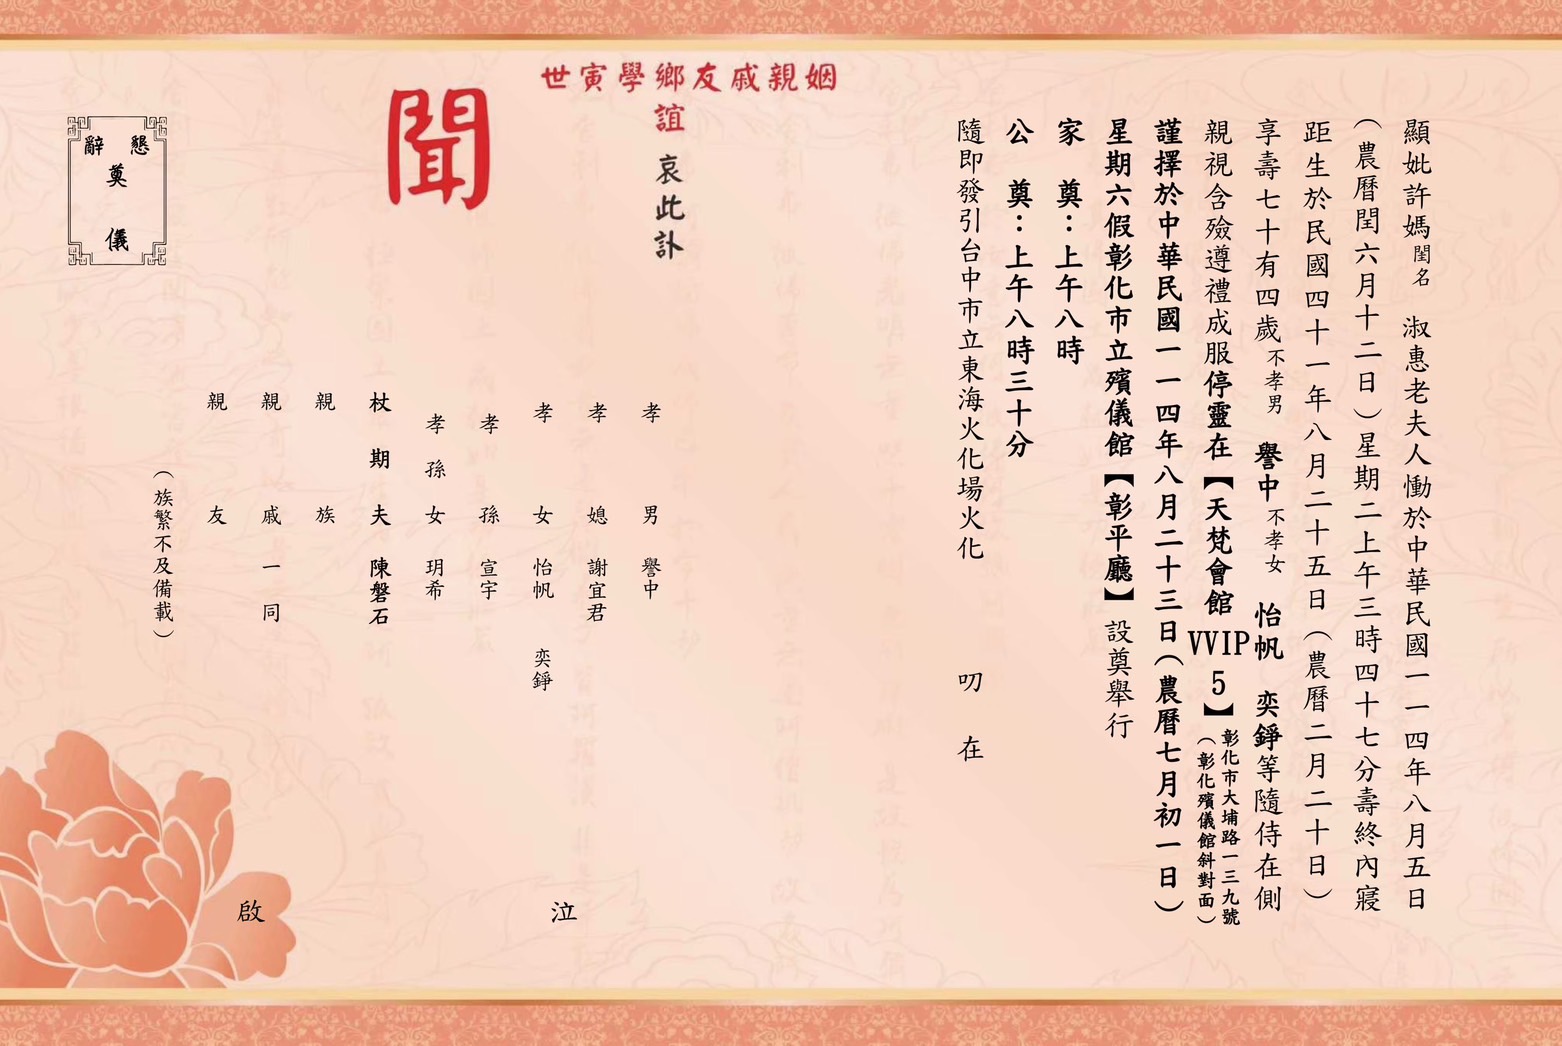 顯妣許媽閨名 淑惠老夫人慟於中華民國一一四年八月五日
（農曆閏六月十二日）星期二上午三時四十七分壽終內寢
距生於民國四十一年八月二十五日（農曆二月二十日）
享壽七十有四歲不孝男 譽中 不孝女 怡帆 奕錚等隨侍在側
親視含殮遵禮成服停靈在【天梵會館VVIP5】
彰化市大埔路一三九號
（彰化殯儀館斜對面）
謹擇於中華民國一一四年八月二十三日（農曆七月初一日）
星期六假彰化市立殯儀館【彰平廳】設奠舉行
家 奠：上午八時
公 奠：上午八時三十分
隨即發引台中市立東海火化場火化 叨 在
姻親戚友鄉學寅世
誼 哀此訃
聞
孝 男 譽中
孝 媳 謝宜君
孝 女 怡帆 奕錚
孝 孫 宣宇
孝孫女 玥希
杖期夫 陳磐石
親 族
親 戚 一 同
親 友
（族繁不及備載）
泣
啟
懇辭
奠儀